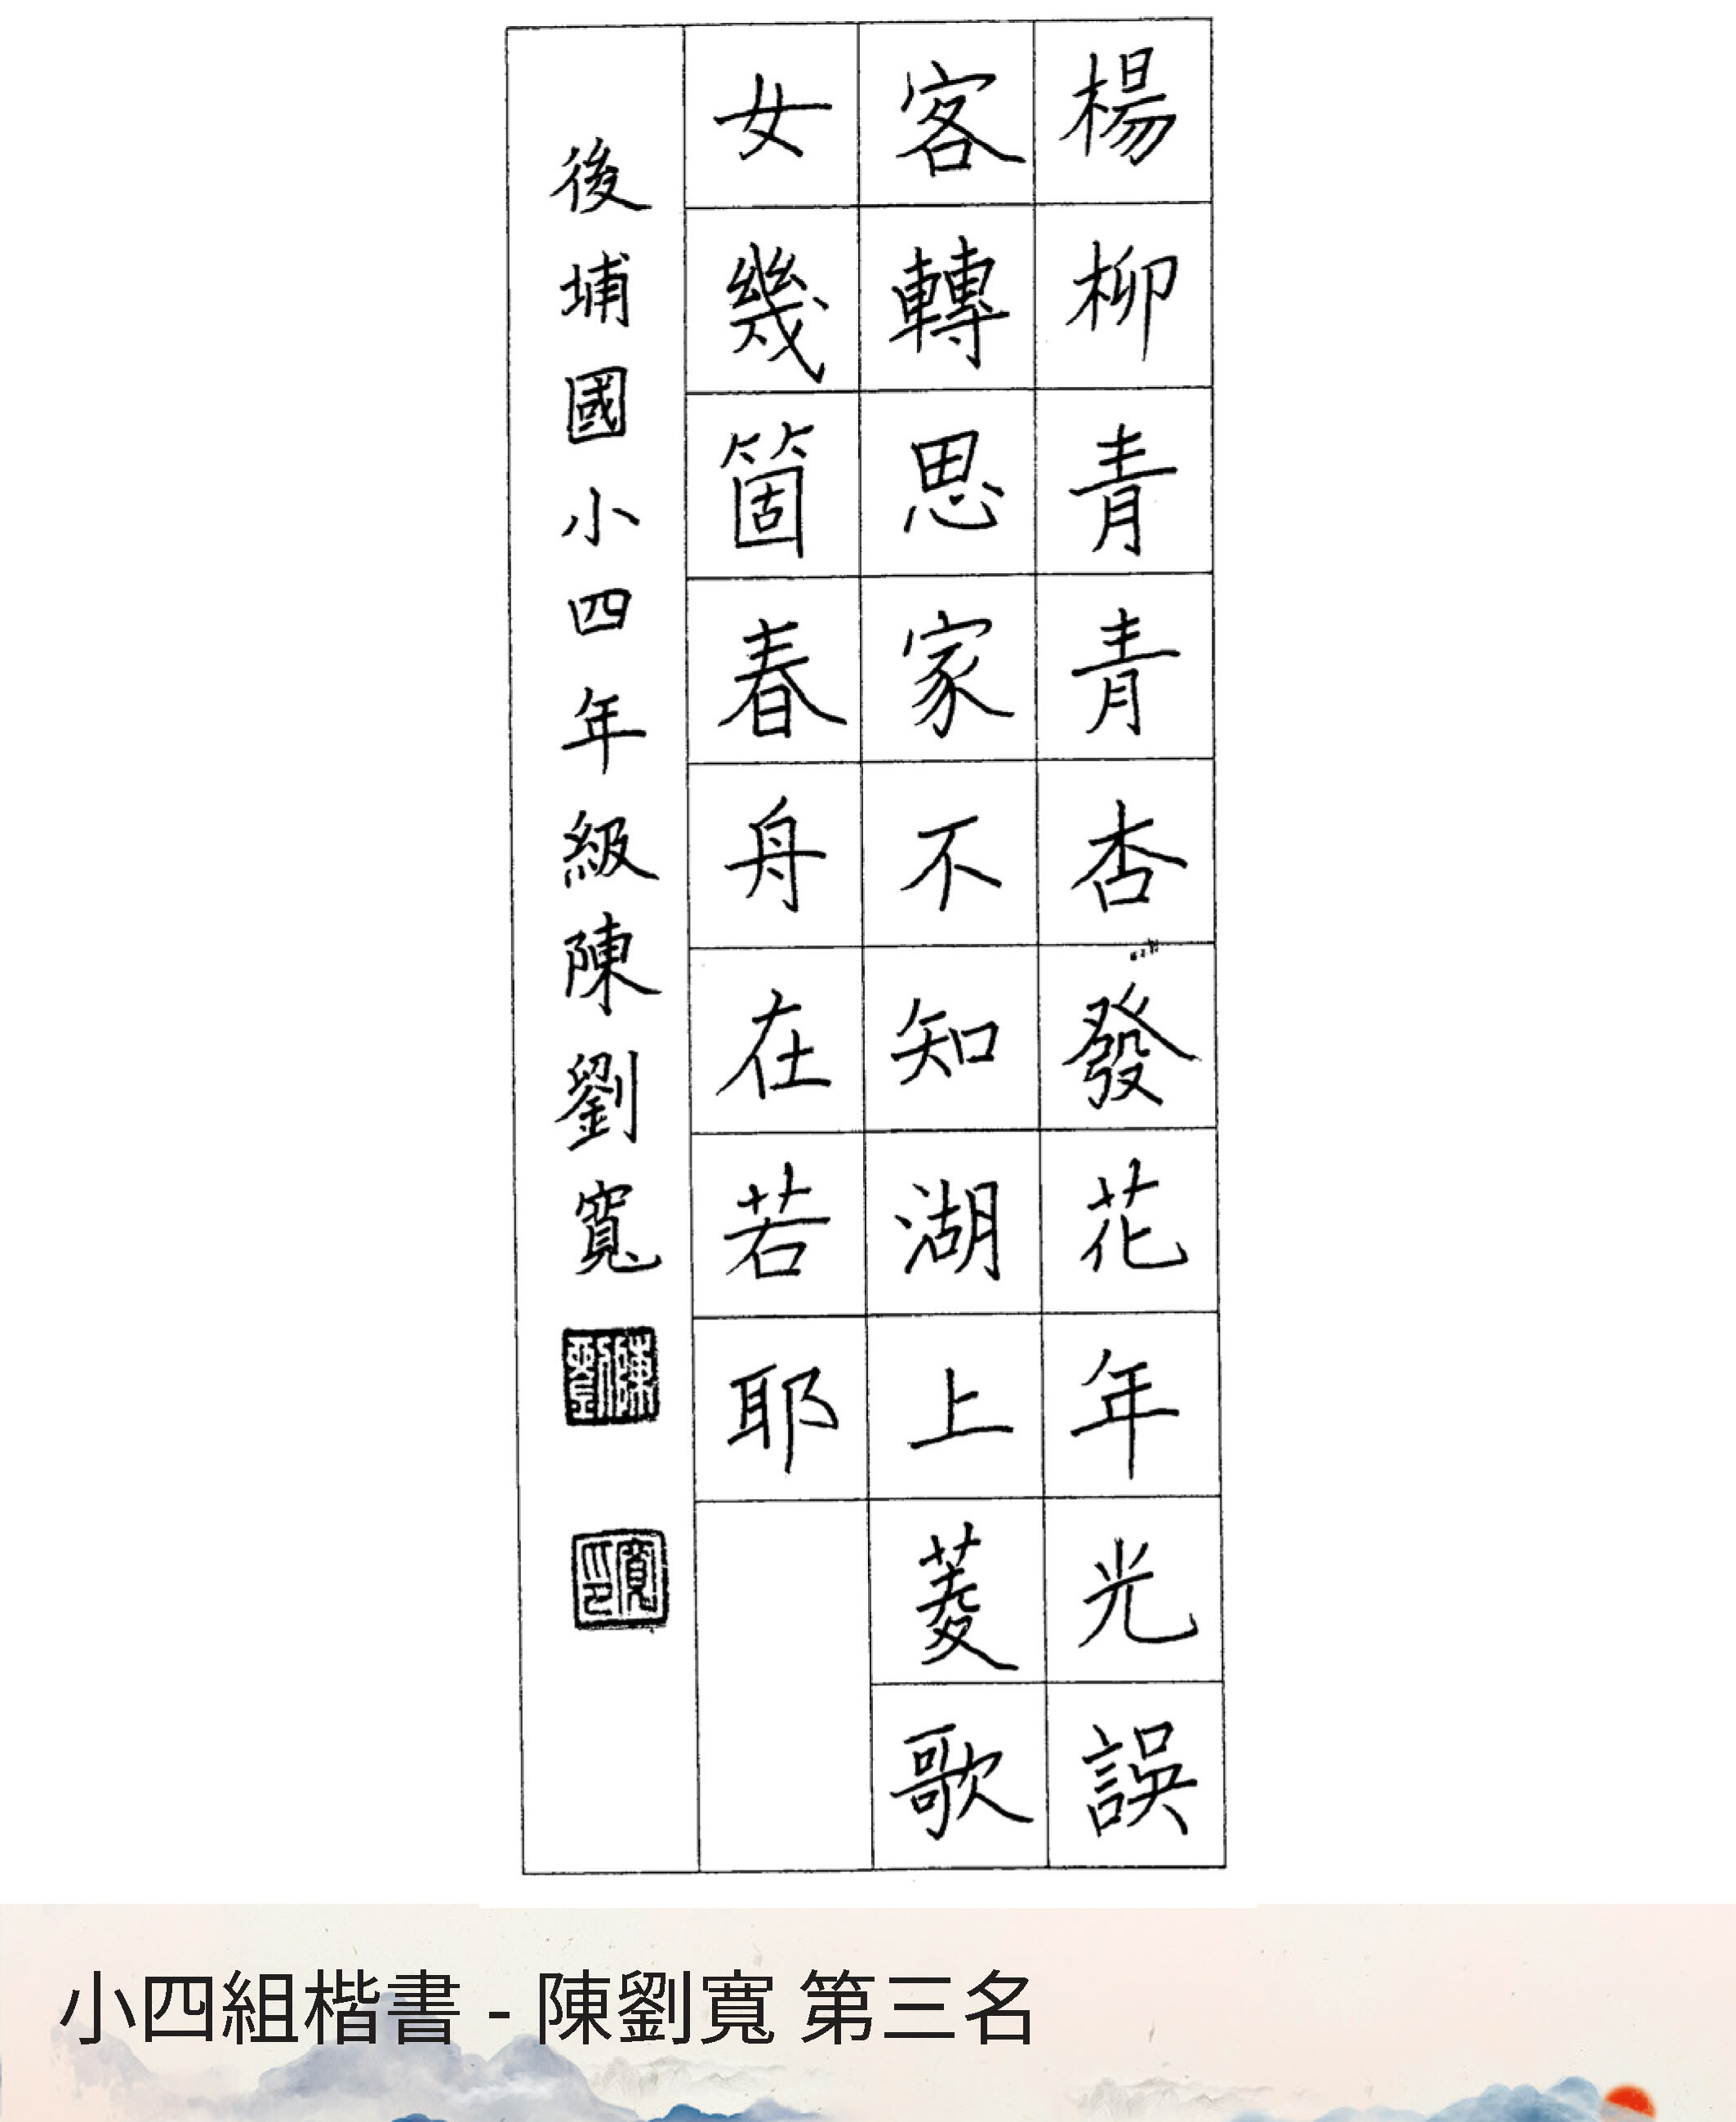 楊柳青青杏發花年光誤
客轉思家不知湖上菱歌
女幾箇春舟在若耶
後埔國小四年級陳劉寬
陳劉
寬印
小四組楷書 - 陳劉寬 第三名